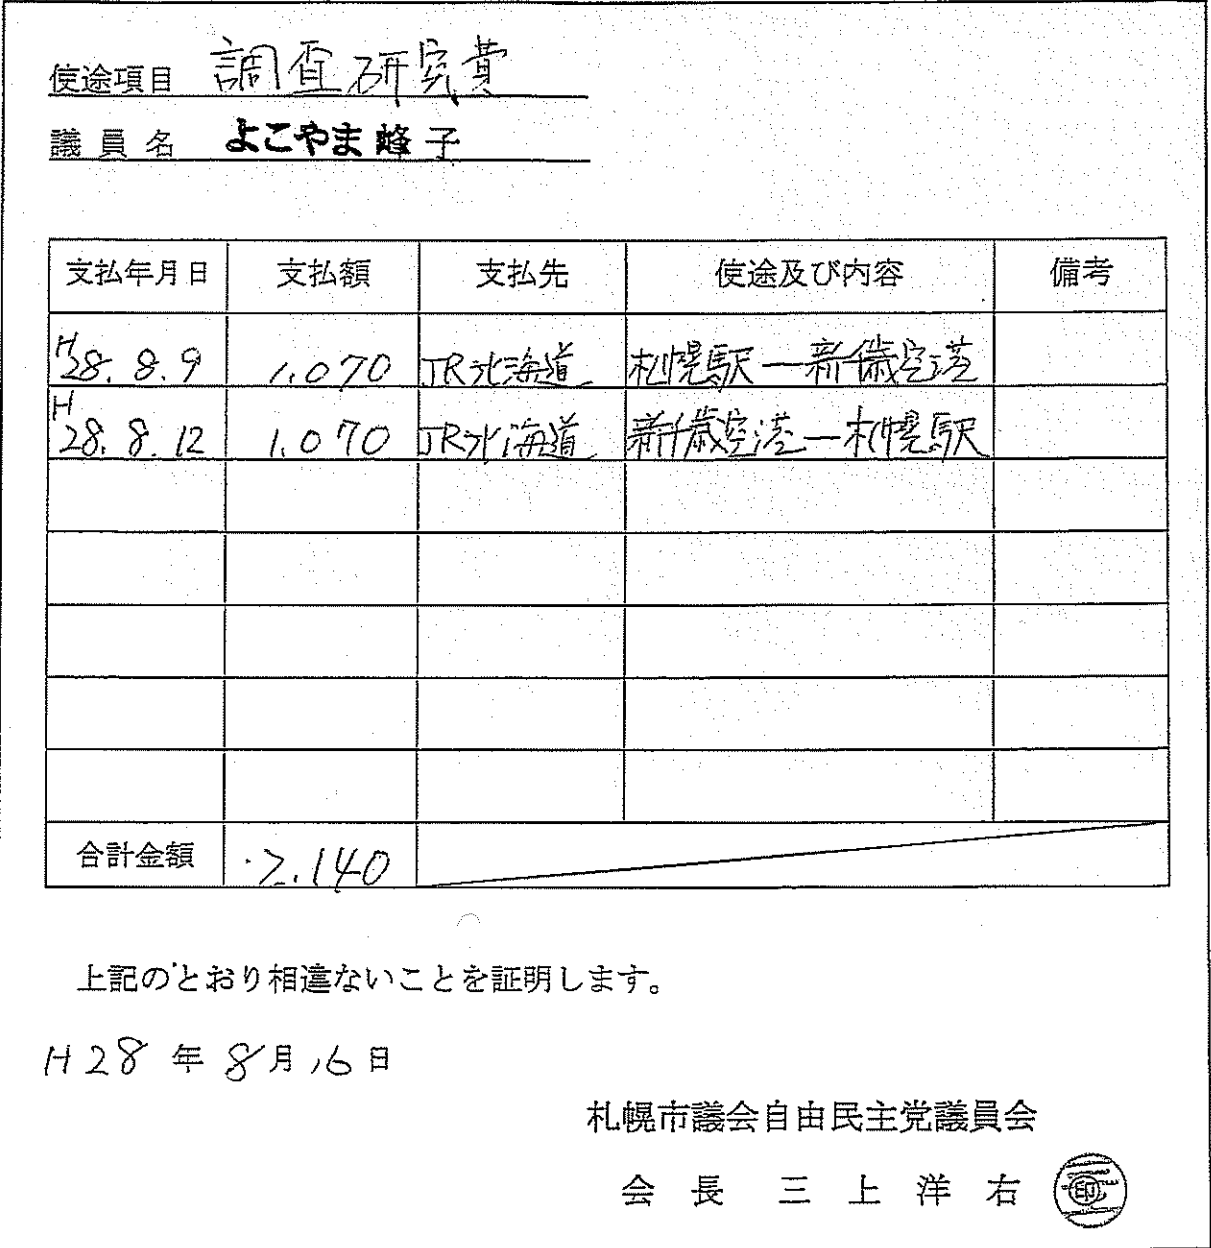 使途項目 調査研究費
議員名 よこやま峰子
支払年月日 支払額 支払先 使途及び内容 備考
H28.8.9 1.070 JR北海道 札幌駅ー新千歳空港
H28.8.12 1.070 JR北海道 新千歳空港ー札幌駅
合計金額 2.140
上記のとおり相違ないことを証明します。
H28年8月16日
札幌市議会自由民主党議員会
会長 三上洋右 印